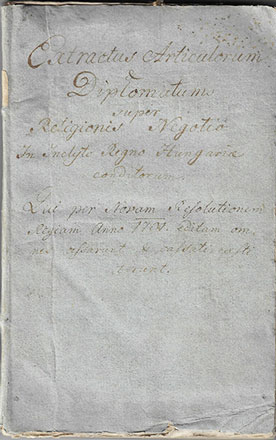 Extractus Articulorum
Diplomatum
super
Religionis Negotio
In inclyto Regno Hungariæ
conditorum.
Qui per Novam Resolutionem
Regiam Anno 1701. editam om
nes &